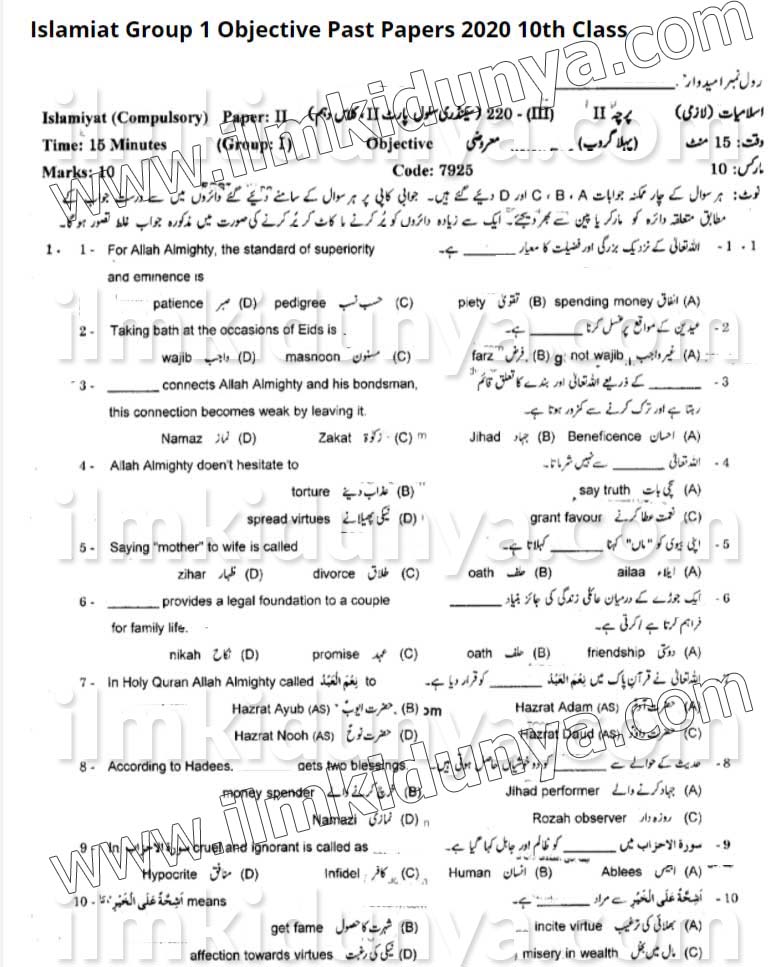 Islamiat Group 1 Objective Past Papers 2020 10th Class
رول نمبر امیدوار ____________
Islamiyat (Compulsory) Paper: II (سیکنڈری سکول پارٹ II، کلاس دہم) 220 - (III) پرچہ II اسلامیات (لازمی)
Time: 15 Minutes (Group: I) Objective معروضی (پہلا گروپ) وقت: 15 منٹ
Marks: 10 Code: 7925 مارکس: 10
نوٹ: ہر سوال کے چار ممکنہ جوابات C ، B ، A اور D دیئے گئے ہیں۔ جوابی کاپی پر ہر سوال کے سامنے دیئے گئے دائروں میں سے درست جواب کے
مطابق متعلقہ دائرہ کو مارکر یا پین سے بھر دیجئے۔ ایک سے زیادہ دائروں کو پُر کرنے یا کاٹ کر پُر کرنے کی صورت میں مذکورہ جواب غلط تصور ہوگا۔
1 . 1 - For Allah Almighty, the standard of superiority اللہ تعالیٰ کے نزدیک بزرگی اور فضیلت کا معیار ______ ہے۔ 1 - 1
and eminence is
patience صبر (D) pedigree حسب نسب (C) piety تقویٰ (B) spending money انفاق (A)
2 - Taking bath at the occasions of Eids is . عیدین کے مواقع پر غسل کرنا ______ ہے۔ - 2
wajib واجب (D) masnoon مسنون (C) farz فرض (B) not wajib غیر واجب (A)
3 - ______ connects Allah Almighty and his bondsman, ______ کے ذریعے اللہ تعالیٰ اور بندے کا تعلق قائم - 3
this connection becomes weak by leaving it. رہتا ہے اور ترک کرنے سے کمزور ہوتا ہے۔
Namaz نماز (D) Zakat زکوٰۃ (C) Jihad جہاد (B) Beneficence احسان (A)
4 - Allah Almighty doen't hesitate to اللہ تعالیٰ ______ سے نہیں شرماتا۔ - 4
torture عذاب دینے (B) say truth سچی بات (A)
spread virtues نیکی پھیلانے (D) grant favour نعمت عطا کرنے (C)
5 - Saying "mother" to wife is called اپنی بیوی کو "ماں" کہنا ______ کہلاتا ہے۔ - 5
zihar ظہار (D) divorce طلاق (C) oath حلف (B) ailaa ایلاء (A)
6 - ______ provides a legal foundation to a couple ایک جوڑے کے درمیان عائلی زندگی کی جائز بنیاد ______ - 6
for family life. فراہم کرتا ہے / کرتی ہے۔
nikah نکاح (D) promise عہد (C) oath حلف (B) friendship دوستی (A)
7 - In Holy Quran Allah Almighty called نِعْمَ الْعَبْدُ to اللہ تعالیٰ نے قرآن پاک میں نِعْمَ الْعَبْدُ ______ کو قرار دیا ہے۔ - 7
Hazrat Ayub (AS) حضرت ایوبؑ (B) Hazrat Adam (AS) حضرت آدمؑ (A)
Hazrat Nooh (AS) حضرت نوحؑ (D) Hazrat Daud (AS) حضرت داؤدؑ (C)
8 - According to Hadees, ______ gets two blessings. حدیث کے حوالے سے ______ کو دو خوشیاں حاصل ہوتی ہیں۔ - 8
money spender خرچ کرنے والے (B) Jihad performer جہاد کرنے والے (A)
Namazi نمازی (D) Rozah observer روزہ دار (C)
9 - In سورۃ الاحزاب cruel and ignorant is called as سورۃ الاحزاب میں ______ کو ظالم اور جاہل کہا گیا ہے۔ - 9
Hypocrite منافق (D) Infidel کافر (C) Human انسان (B) Ablees ابلیس (A)
10 - اَشِحَّةً عَلَى الْخَيْرِ means اَشِحَّةً عَلَى الْخَيْرِ سے مراد ______ ہے۔ - 10
get fame شہرت کا حصول (B) incite virtue بھلائی کی ترغیب (A)
affection towards virtues نیکی کی رغبت (D) misery in wealth مال میں بخل (C)
www.ilmkidunya.com
ilmkidunya.com
ilmkidunya.com
ilmkidunya.com
ilmkidunya.com
www.ilmkidunya.com
ilmkidunya.com